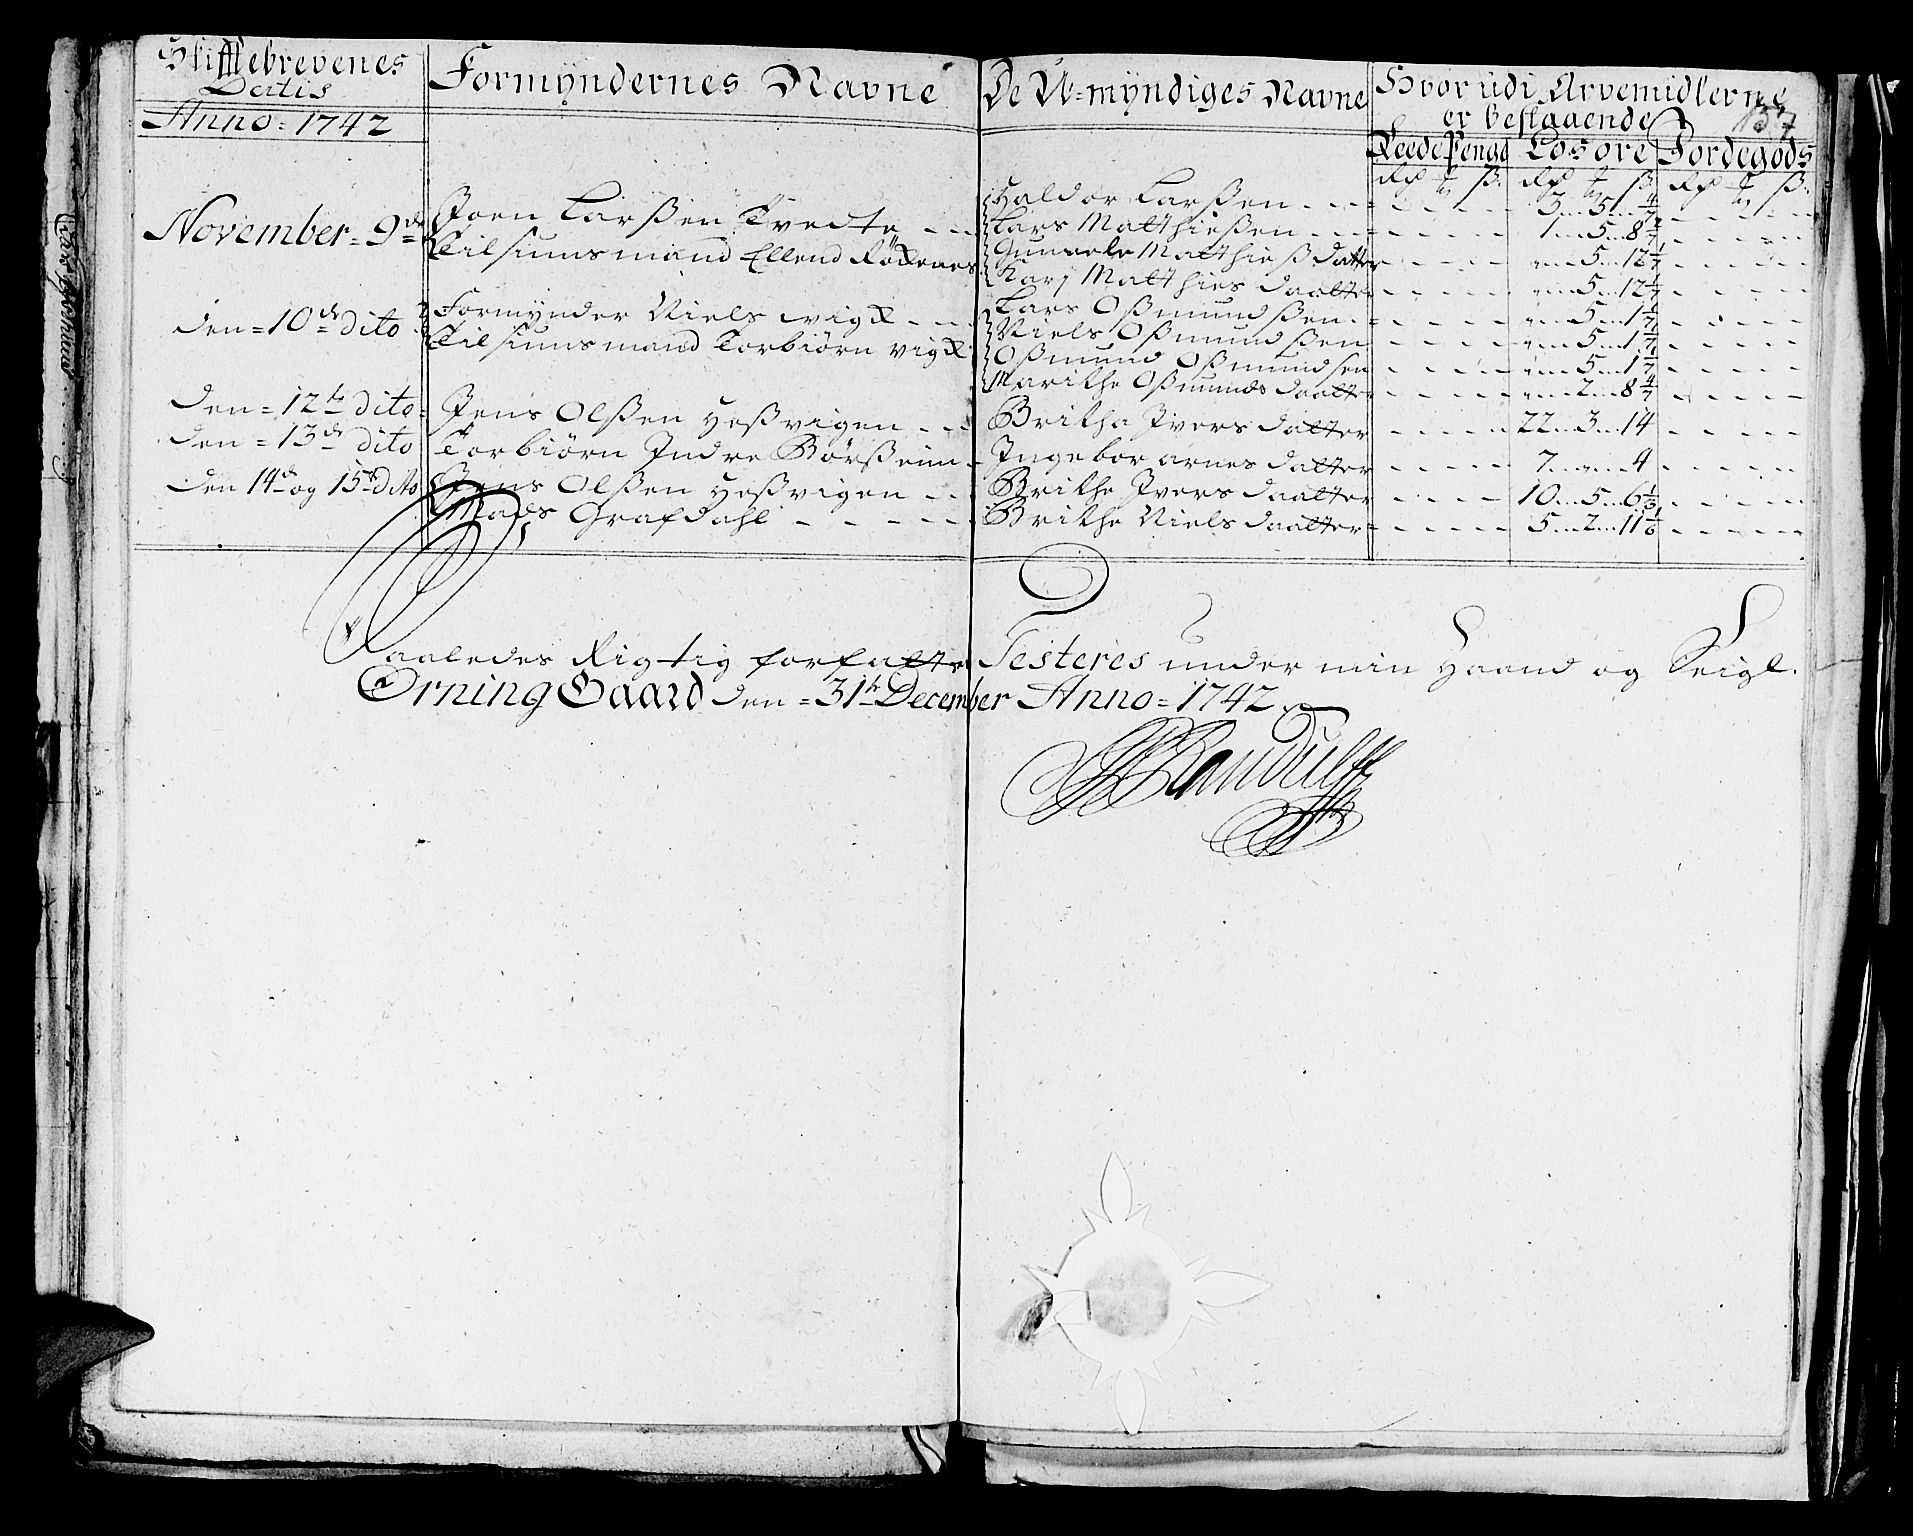 Skifftebrevenes Datis | Formyndernes Navne | De U=myndiges Navne | Hvor udi Arvemidlerne er bestaaende
137
Anno = 1742 | Reede Penge | Losøre | Jordegods
Rdr ß. | Rdr ß. | Rdr ß.
November = 9de | Joen Larßen Tvedte | Haldor Larßen | 3 5 4/7
Lars Matthießen | 1 5 8 2/7
Tilsiunsmand Ellend | Matthießdatter | 5 12 1/7
Karj Matthies daatter | 5 12 1/7
den = 10de dito | Formynder Niels Vigk | Lars Oßmundßen | 5 1 1/7
Tilsiunsmand Torbiørn Vigk | Niels Oßmundßen | 5 1 1/7
Oßmund Oßmundsen | 5 1 1/7
Marithe Oßmunds daatter | 2 8 4/7
den = 12te dito | Jens Olßen Heßvigen | Britha Ivers datter | 22 3 14
den = 13de dito | Torbiørn Indre Børßeim | Ingebor arnes datter | 7 4
den 14de og 15de dito | Jens Olßen Heßvigen | Brithe Ivers daatter | 10 5 6 1/3
Mads Grafdahl | Brithe Niels daatter | 5 2 11 1/6
Saaledes Rigtig forfattet Testeres under min Haand og Seigl.
Ørning Gaard den = 31te December Anno = 1742
Randulff